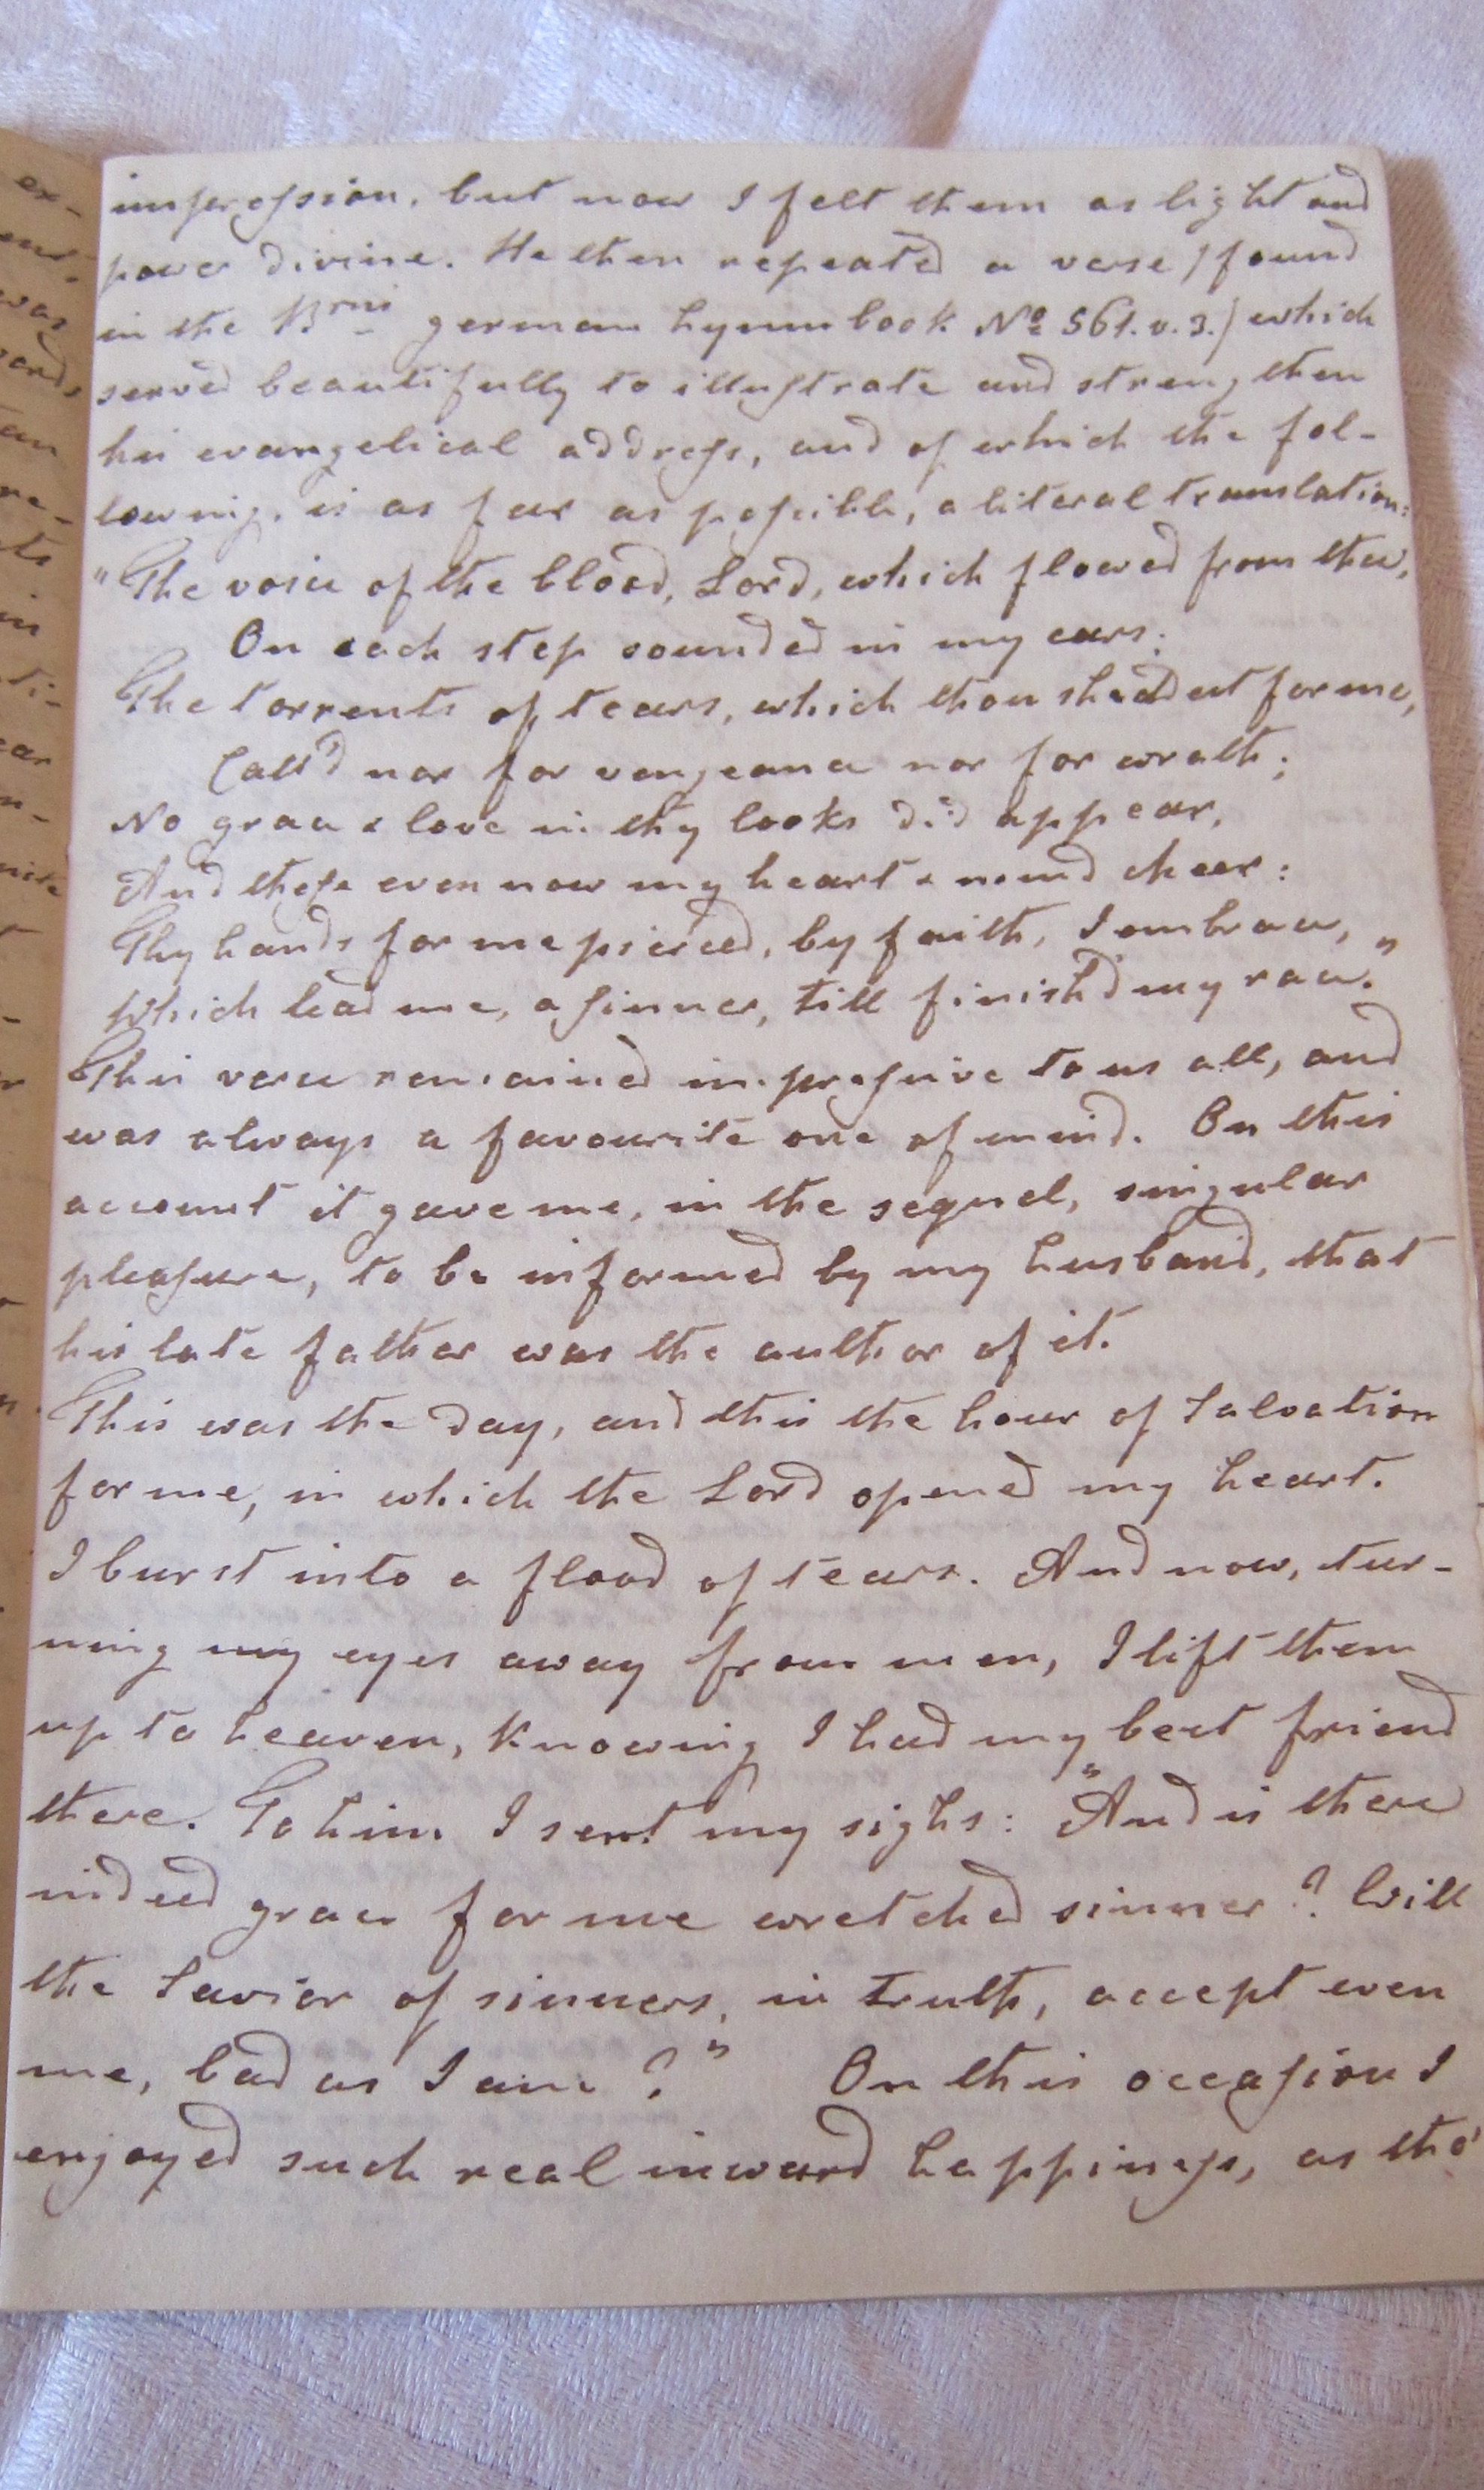 impression, but now I felt them as light and
power divine. He then repeated a verse /found
in the Brns german hymn book No 561. v. 3./ which
served beautifully to illustrate and strengthen
his evangelical address, and of which the fol-
lowing, is as far as possible, a literal translation:
"The voice of the blood, Lord, which flowed from thee,
On each step sounded in my ears;
The torrents of tears, which thou sheddest for me,
Call'd nor for vengeance nor for wrath;
No grace & love in thy looks did appear,
And these even now my heart & mind cheer:
Thy hands for me pierced, by faith, I embrace,
Which lead me, a sinner, till finish'd my race."
This verse remained impressive to us all, and
was always a favourite one of mind. On this
account it gave me, in the sequel, singular
pleasure, to be informed by my husband, that
his late father was the author of it.
This was the day, and this the hour of Salvation
for me, in which the Lord opened my heart.
I burst into a flood of tears. And now, tur-
ning my eyes away from men, I lift them
up to heaven, knowing I had my best friend
there. To him I sent my sighs: "And is there
indeed grace for me wretched sinner? Will
the Savior of sinners, in truth, accept even
me, bad as I am?" On this occasion I
enjoyed such real inward happiness, as tho'